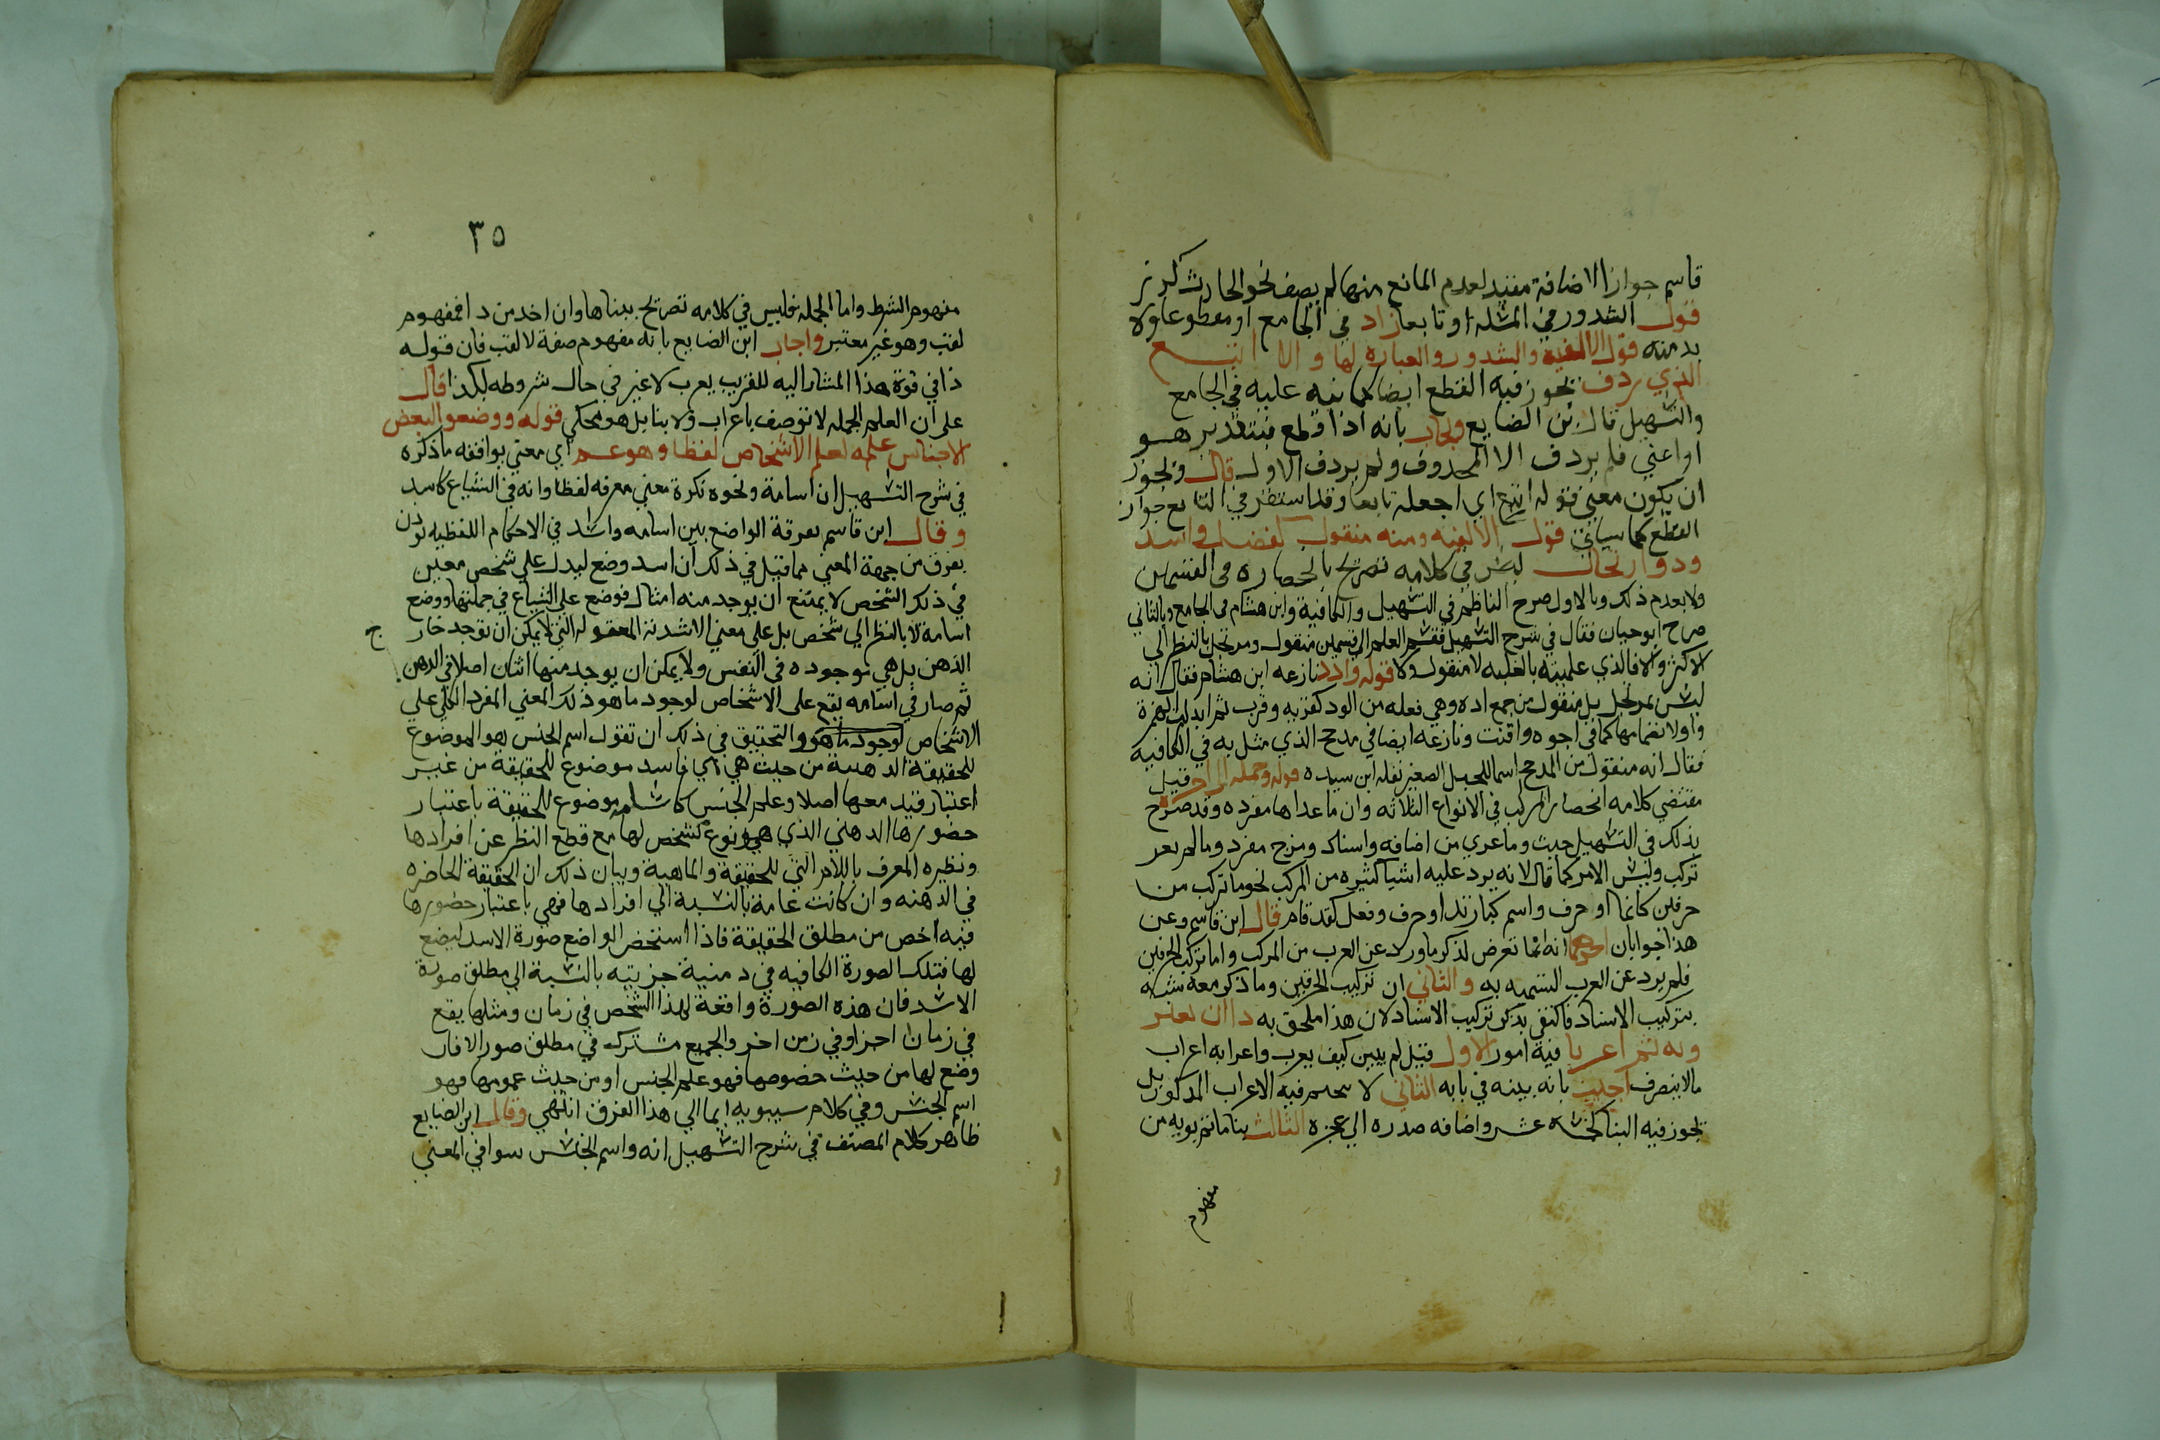 قاسم جواز الاضافة مفيد لعدم المانع منها لم يصف نحو الحارث كرز
قول الشذور في امثلة او تابعا زاد في الجامع او مقطوعا ولا
بد منه قول الالفيه والشدور والعباره لها والا اتبع
الذي ردف يجوز فيه القطع ايضا كما نبه عليه في الجامع
والتسهيل قال بن الضايع ويجاب بانه اذا قطع فبتقدير هو
او اعني فلم يردف الا المحدوف ولم يردف الاول قال ويجوز
ان يكون معني قوله اتبع اي اجعله تابعا وقد استظر في التابع جواز
القطع كما سياتي قول الالفيه ومنه منقول كفضل واسد
ودوا رتجال ليس في كلامه تصريح بالحصاره في القسمين
ولا بعدم ذلك وبالاول صرح الناظم في التسهيل والكافية وابن هشام في الجامع وبالثاني
صرح ابو حيان فقال في شرح التسهيل قسم العلم الي قسمين منقول ومرتجل بالنظر الي
الاكثر والا فالذي علميته بالغلبه لا منقول ولا قوله وادد نازعه ابن هشام فقال انه
ليس بمرتجل بل منقول من جمع اده وهي فعله من الود كقربه وقرب ثم ابدلت الهمزة
واوا لانضمامها كما في اجوه واقتت ونازعه ايضا في مدحج الذي مثل به في الكافيه
فقال انه منقول من المدحج اسما للجبل الصغير نقله ابن سيده قوله وجمله الي اخره قيل
مقتضي كلامه انحصار المركب في الانواع الثلاثه وان ماعداها مفرده وقد صرح
بذلك في التسهيل حيث وما عري من اضافه واسناد ومزج مفرد ومالم يعر
تركب وليس الامر كما قال لانه يرد عليه اشيا كثيره من المركب نحو ما تركب من
حرفين كانما او حرف واسم كيازيد او حرف وفعل كقد قام قال ابن قاسم وعن
هذا جوابان احدهما انه انما تعرض لذكر ماورد عن العرب من المركب واما تركيب الحرفين
فلم يرد عن العرب التسميه به والثاني ان تركيب الحرفين وما ذكر معه شبيه
بتركيب الاسناد فاكتفي بذكر تركيب الاسناد لان هذا ملحق به دا ان بغير
ويه تم اعربا فيه امور الاول قيل لم يبين كيف يعرب واعرابه اعراب
مالا ينصرف اجيب بانه بينه في بابه الثاني لا يتحتم فيه الاعراب المذكور بل
يجوز فيه البنا كخمسه عشر واضافه صدره الي عجزه الثالث بنا ماتم بويه من
مفهوم
٣٥
مفهوم الشرط واما الجمله فليس في كلامه تصريح ببناها وان اخد من دا فمفهوم
لقب وهو غير معتبر واجاب ابن الضايع بانه مفهوم صفة لا لقب فان قوله
ذا في قوة هذا المشار اليه للقريب يعرب لا غير في حال شروطه لكذا قال
علي ان العلم الجمله لا توصف باعراب ولا بنا بل هو محكي قوله ووضعوا لبعض
الاجناس علم كعلم الاشخاص لفظا وهو عم اي معني يوافقه ماذكره
في شرح التسهيل ان اسامة ونحوه نكرة معني معرفه لفظا وانه في الشياع كاسد
وقال ابن قاسم تفرقة الواضع بين اسامه واسد في الاحكام اللفظيه تودن
بفرق من جهة المعني مما قيل في ذلك ان اسد وضع ليدل علي شخص معين
في ذلك الشخص لا يمتنع ان يوجد منه امثال فوضع علي الشياع في جملتها ووضع
اسامة لا بالنظر الي شخص بل علي معني الاسدية المعقوله التي لا يمكن ان توجد خار
ج
الذهن بل هي موجوده في النفس ولا يمكن ان يوجد منها اثنان اصلا في الدهن
ثم صار في اسامه يقع علي الاشخاص لوجود ماهو ذلك المعني المفرد الكلي علي
الاشخاص لوجود ماهو والتحقيق في ذلك ان تقول اسم الجنس هو الموضوع
للحقيقة الدهنية من حيث هي اي فاسد موضوع للحقيقة من غير
اعتبار قيد معها اصلا وعلم الجنس كاسامه موضوع للحقيقة باعتبار
حضورها الدهني الذي هو نوع تشخص لها مع قطع النظر عن افرادها
ونظيره المعرف باللام التي للحقيقة والماهية وبيان ذلك ان الحقيقة الحاضره
في الذهنه وان كانت عامة بالنسبة الي افرادها فهي باعتبار حضورها
فيه اخص من مطلق الحقيقة فاذا استخضر الواضع صورة الاسد ليضع
لها فتلك الصورة الكافيه في دمنية جزيته بالنسبة الي مطلق صورة
الاسد فان هذه الصورة واقعة لهذا الشخص في زمان ومثلها يقع
في زمان اخر او في زمن اخر والجميع مشترك في مطلق صور الافان
وضع لها من حيث خصوصها فهو علم الجنس او من حيث عمومها فهو
اسم الجنس وفي كلام سيبويه ايما الي هذا الفرق انتهي وقال ابن الضايع
ظاهر كلام المصنف في شرح التسهيل انه واسم الجنس سوا في المعني